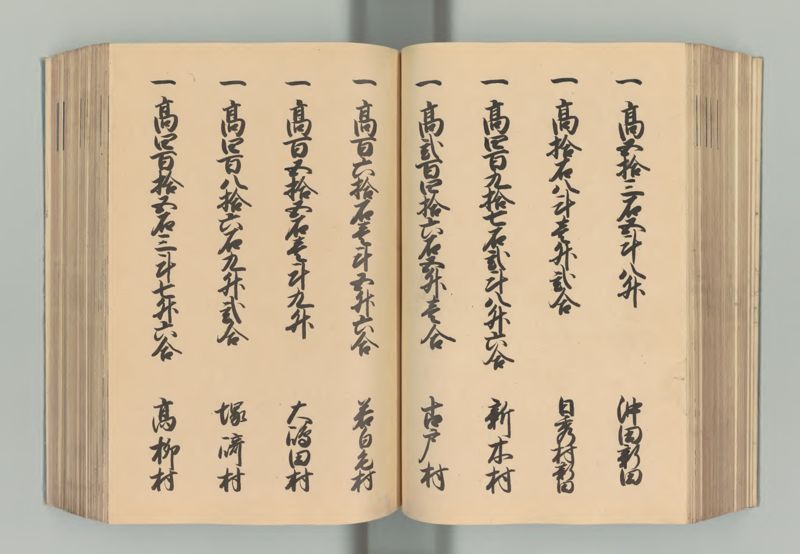 一 高五拾三石五斗八升 沖田新田
一 高拾石八斗壱升弐合 日秀村新田
一 高四百九拾七石弐斗八升六合 新木村
一 高弐百四拾六石五升壱合 古戸村
一 高百六拾石壱斗五升六合 若白毛村
一 高百五拾五石壱斗九升 大嶋田村
一 高四百八拾六石九升弐合 塚﨑村
一 高四百拾五石三斗七升六合 高柳村